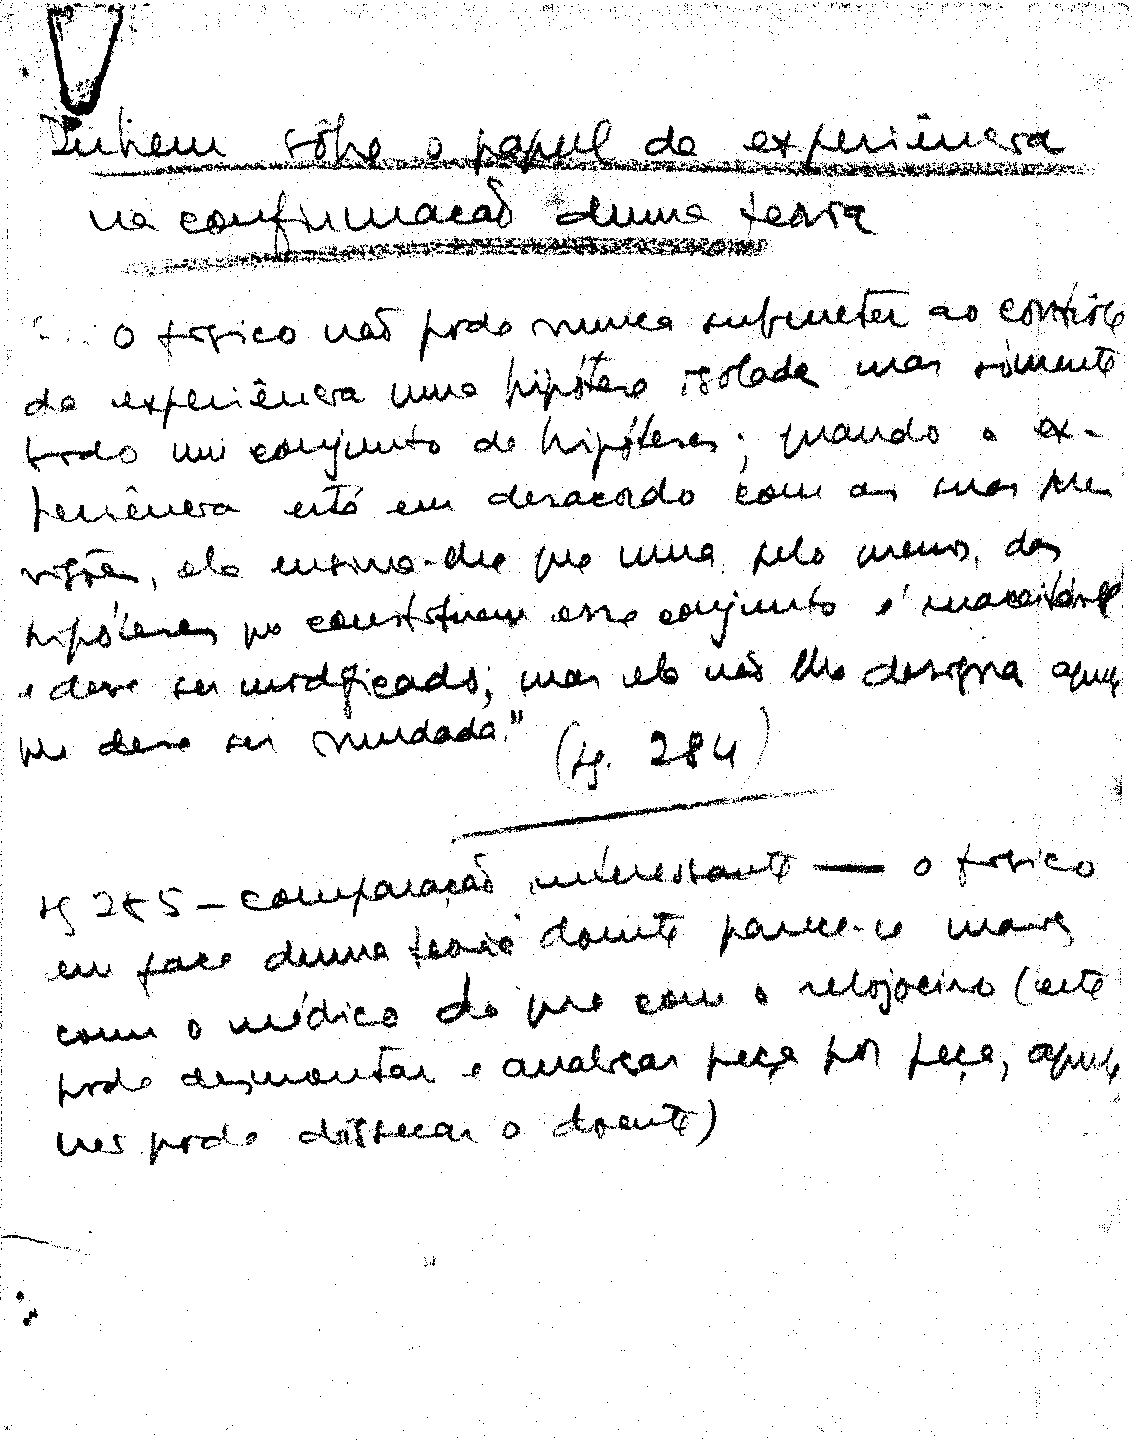 Duhem sôbre o papel da experiência
na confirmação duma teoria
"... O físico não pode nunca submeter ao contrôle
da experiência uma hipótese isolada mas sòmente
todo um conjunto de hipóteses; quando a ex-
periência está em desacordo com as suas pre
visões, ela ensina-lhe que uma, pelo menos, das
hipóteses que constituem esse conjunto é inaceitável
e deve ser modificado; mas ela não lhe designa aquela
que deve ser mudada." (pg. 284)
pg 285 — comparação interessante — o físico
em face duma teoria "doente" parece-se mais
com o médico do que com o relojoeiro (este
pode desmontar e analisar peça por peça, aquele
nem pode dissecar o doente)